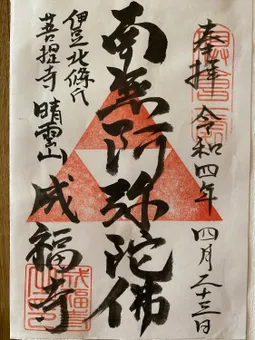 奉拝 令和四年 四月二十三日
南無阿弥陀佛
伊豆北條氏
菩提寺 晴雲山 成福寺
成福寺